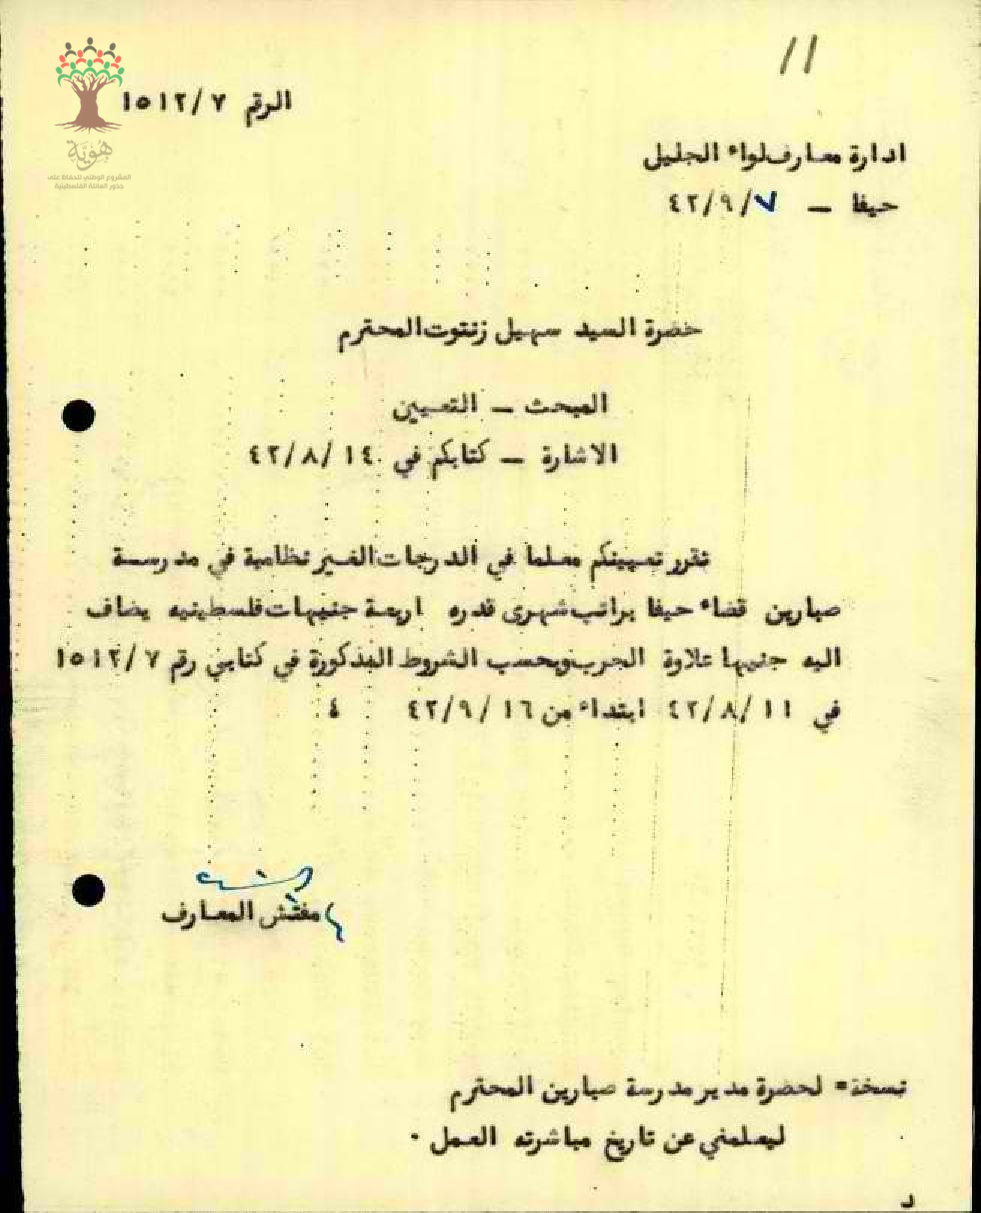 ١١
الرقم ١٥١٢/٧
هوية
المشروع الوطني للحفاظ على
جذور العائلة الفلسطينية
ادارة معارف لواء الجليل
حيفا – ٤٢/٩/٧
حضرة السيد سهيل زنتوت المحترم
المبحث – التعيين
الاشارة – كتابكم في ٤٢/٨/١٤
تقرر تعيينكم معلما في الدرجات الغير نظامية في مدرسة
صبارين قضاء حيفا براتب شهرى قدره اربعة جنيهات فلسطينيه يضاف
اليه جنيها علاوة الحرب وبحسب الشروط المذكورة في كتابي رقم ١٥١٢/٧
في ٤٢/٨/١١ ابتداء من ٤٢/٩/١٦ ٤
مفتش المعارف
نسخة= لحضرة مدير مدرسة صبارين المحترم
ليعلمني عن تاريخ مباشرته العمل ٠
د